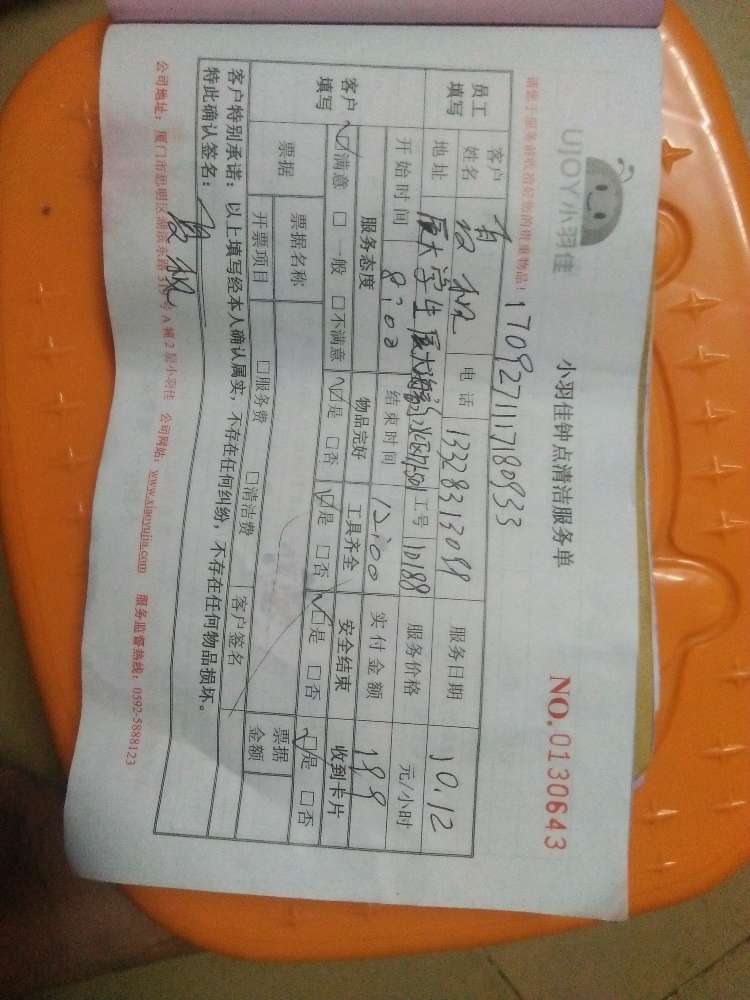 UJOY小羽佳
小羽佳钟点清洁服务单
NO.0130643
请您于服务前收拾好您的贵重物品!
1709271117180933
员工填写 客户姓名 电话 服务日期 10.12
地址 厦大学生 工号 10188 服务价格 元/小时
开始时间 8:00 结束时间 12:00 实付金额 199
客户填写 服务态度 物品完好 工具齐全 安全结束 收到卡片
☑满意 □一般 □不满意 ☑是 □否 ☑是 □否 ☑是 □否 ☑是 □否
票据 票据名称 票据金额
开票项目 □服务费 □清洁费 客户签名
客户特别承诺:以上填写经本人确认属实,不存在任何纠纷,不存在任何物品损坏。
特此确认签名:
公司地址:厦门市思明区湖滨东路 号A幢2层小羽佳 公司网站:www.xiaoyujia.com 服务监督热线:0592-5888123